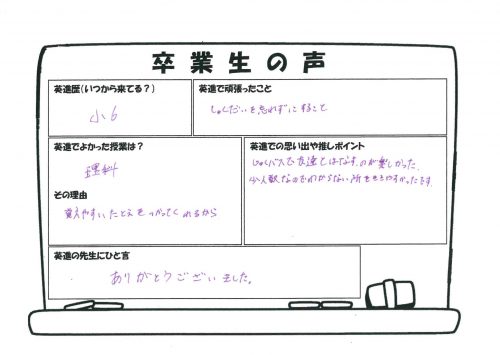 卒業生の声
英進歴(いつから来てる?)
小6
英進で頑張ったこと
しゅくだいを忘れずにすること
英進でよかった授業は?
理科
その理由
覚えやすいたとえをつかってくれるから
英進での思い出や推しポイント
じゅくバスで友達とはなすのが楽しかった.
少人数なのでわからない所をききやすかったです.
英進の先生にひと言
ありがとうございました。